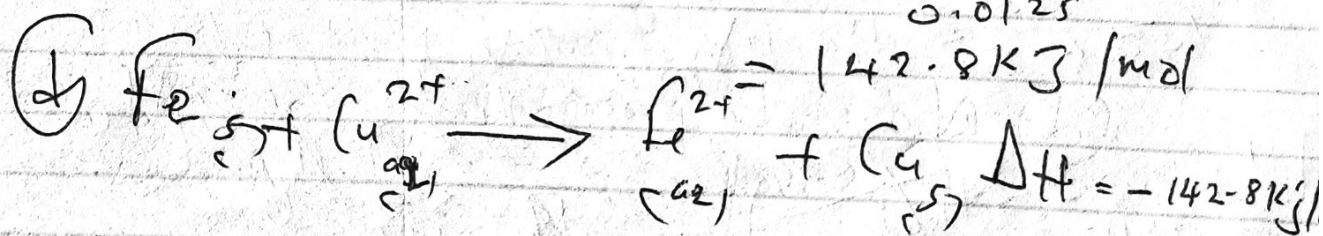 0.0125
= 142.8 KJ /mol
(d) Fe(s) + Cu²⁺(aq) ⟶ Fe²⁺(aq) + Cu(s) ΔH = -142.8 KJ/